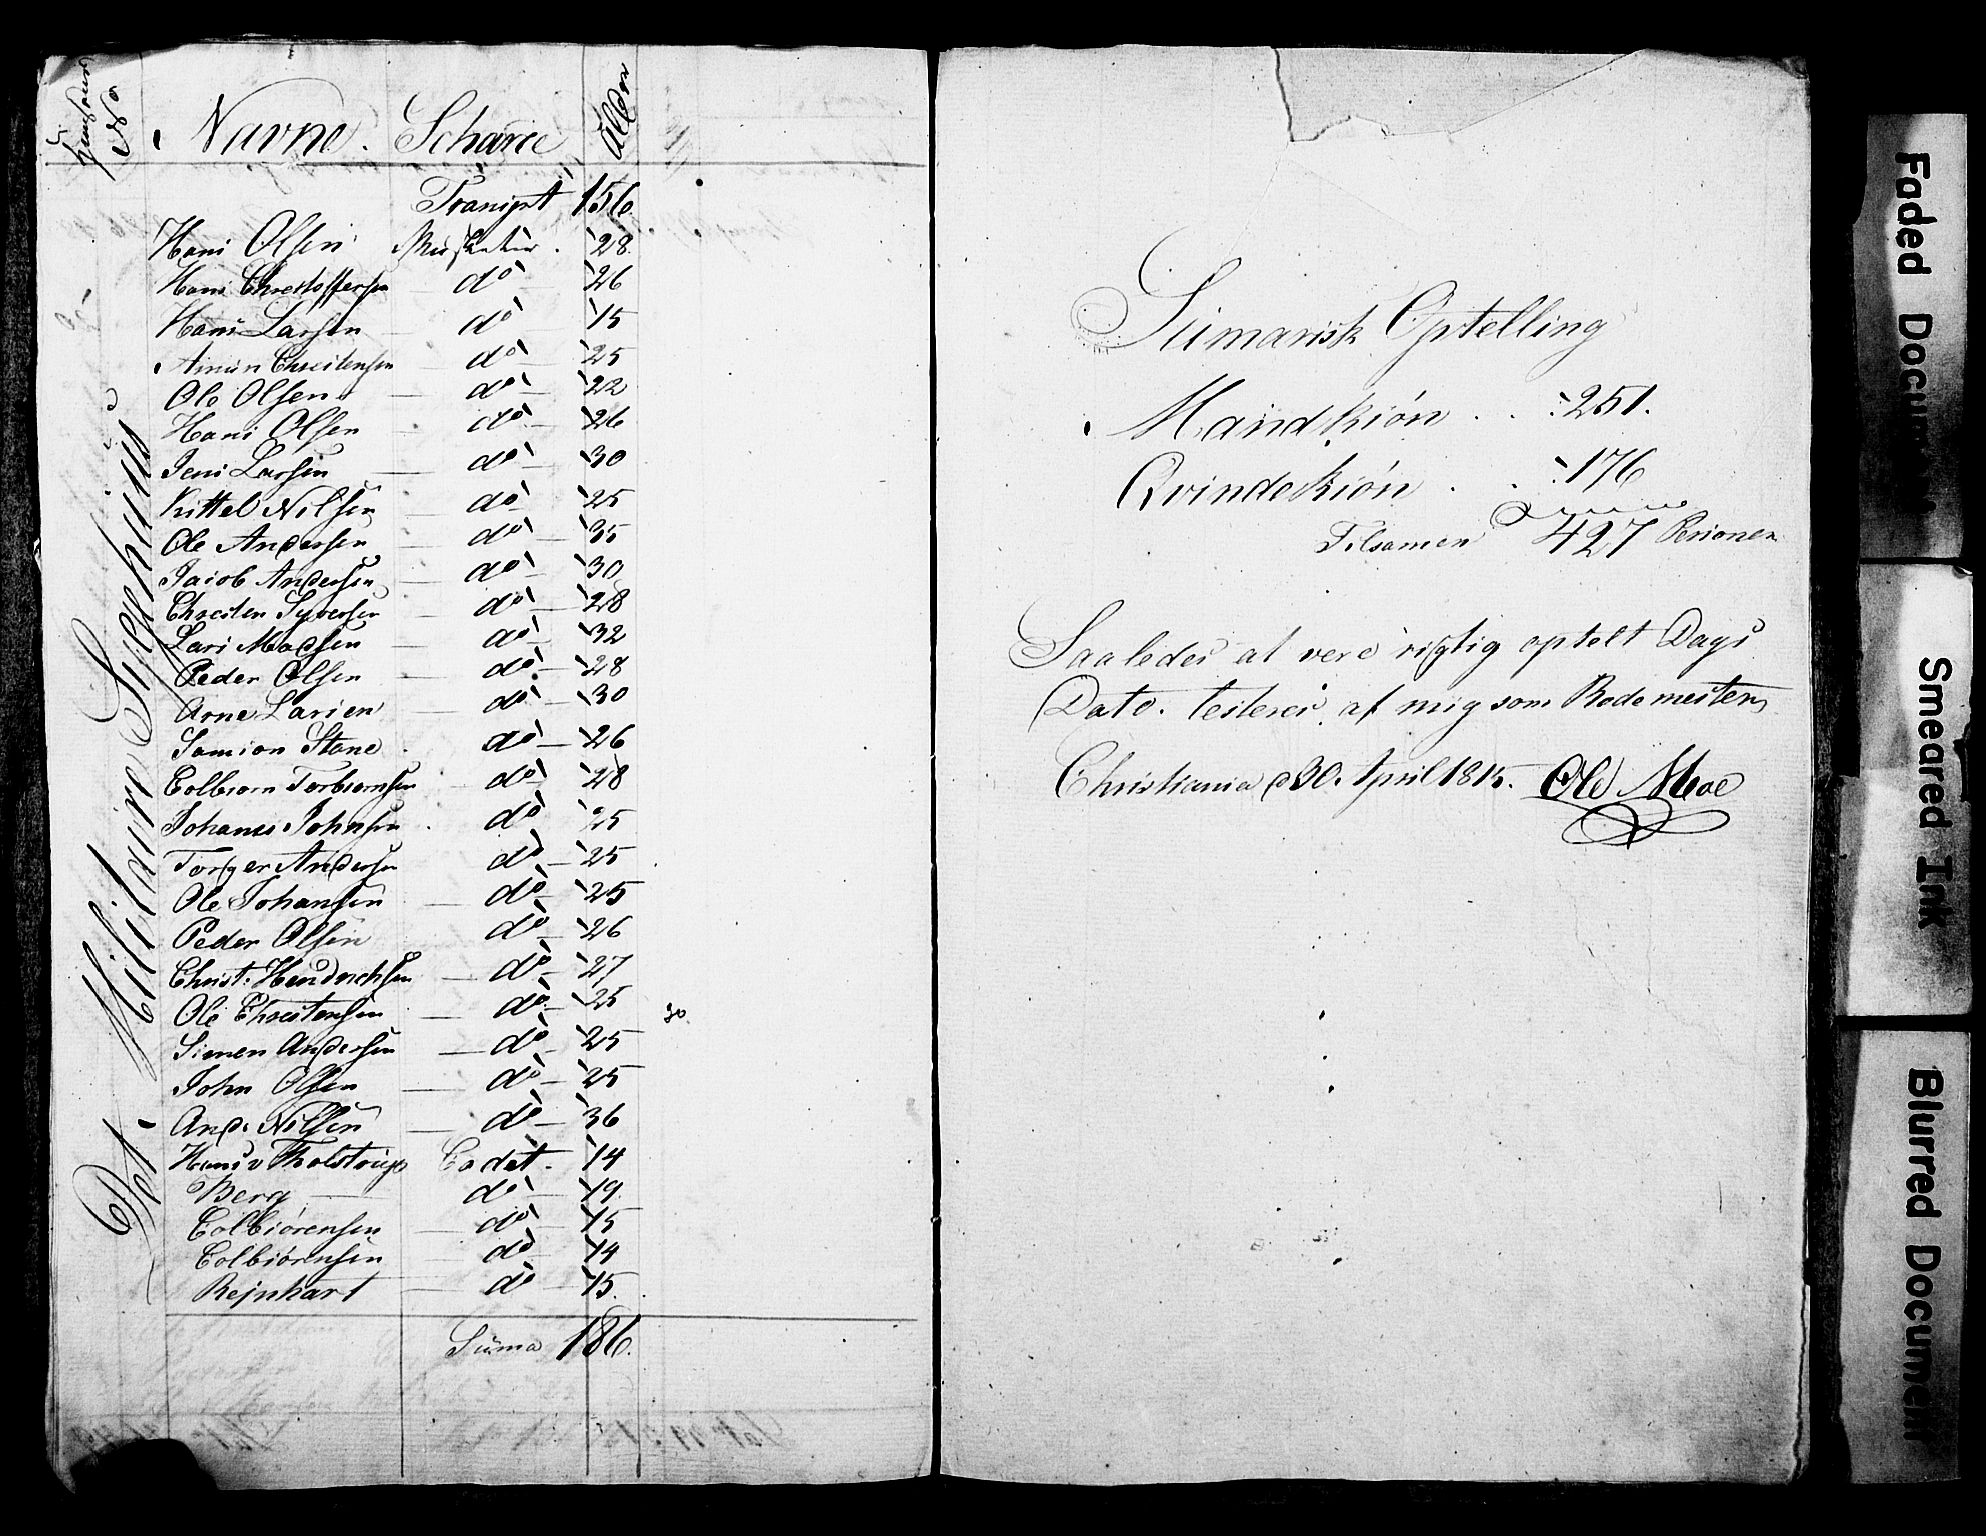 No
Navne. Scharce Alder
Det Militaire Sygehuus
Transpt 156.
Hans Olsen Musketeer. 28.
Hans Christoffersen do 26
Hans Larsen — do 15
Christensen — do 25
Ole Olsen — do 22
Hans Olsen — do 26
Jens Larsen — do 30
Kittel Nilsen — do 25
Ole Andersen — do 35
Jacob Andersen — do 30
Christen Syversen — do 28
Lars Madsen — do 32
Peder Olsen — do 28
Arne Larsen — do 30
Samson Stane. do 26
Colbiorn Torbiornsen do 28
Johanes Johnsen. do 25
Torger Andersen do 25
Ole Johansen — do 25
Peder Olsen do 26
Christ: Hendrichsen — do 27
Ole Christensen — do 25
30.
Simen Andersen — do 25
John Olsen — do 25
And: Nilsen — do 36
Hans v Tholstrup Cadet. 14
Berg — do 19.
Colbiørensen — do 15
Colbiørensen — do 14
Rejnhart — do 15.
Suma 186.
Sumarisk Optelling
Mandkiön . . : 251.
Qvindekiön . . : 176
Tilsamen 427 Personer
Saaledes at vere rigtig optelt Dags
Dato. testeres af mig som Rodemester,
Christiania d 30. April 1815. Ole Moe
Faded Document
Smeared Ink
Blurred Document